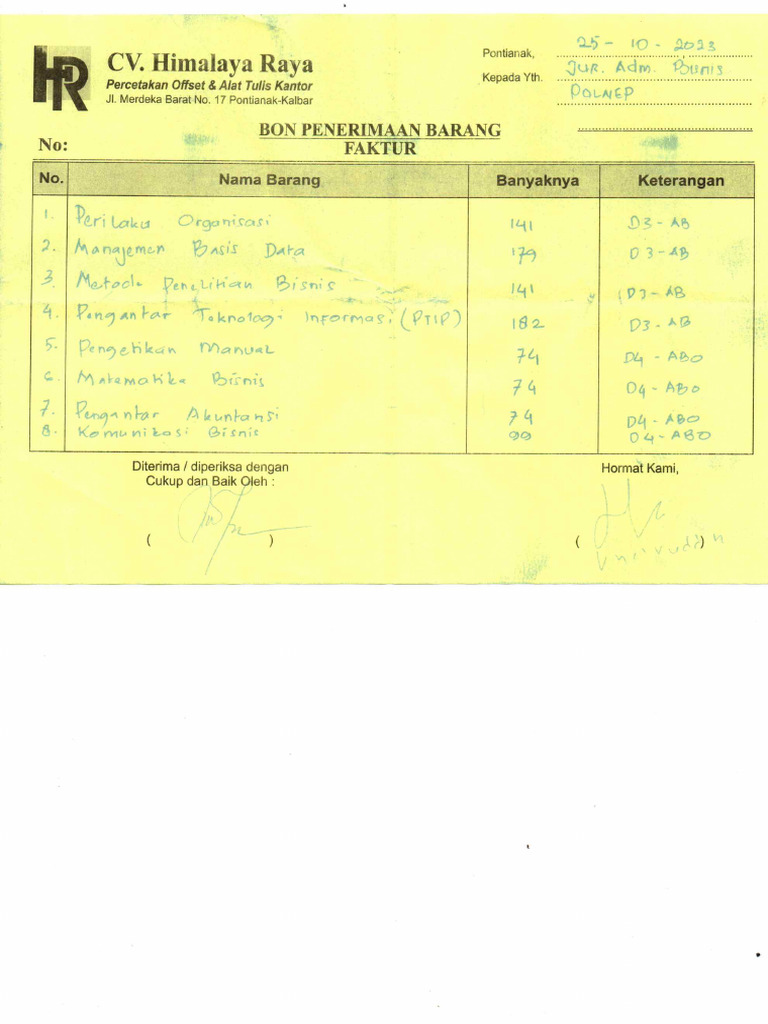 HR
CV. Himalaya Raya
Percetakan Offset & Alat Tulis Kantor
Jl. Merdeka Barat No. 17 Pontianak-Kalbar
Pontianak, 25 - 10 - 2023
Kepada Yth. Jur. Adm. Bisnis
POLNEP
BON PENERIMAAN BARANG
FAKTUR
No:
No. Nama Barang Banyaknya Keterangan
1. Perilaku Organisasi 141 D3 - AB
2. Manajemen Basis Data 179 D3 - AB
3. Metode Penelitian Bisnis 141 D3 - AB
4. Pengantar Teknologi Informasi (PTIP) 182 D3 - AB
5. Pengetikan Manual 74 D4 - ABO
6. Matematika Bisnis 74 D4 - ABO
7. Pengantar Akuntansi 74 D4 - ABO
8. Komunikasi Bisnis 99 D4 - ABO
Diterima / diperiksa dengan
Cukup dan Baik Oleh :
Hormat Kami,
( )
( )